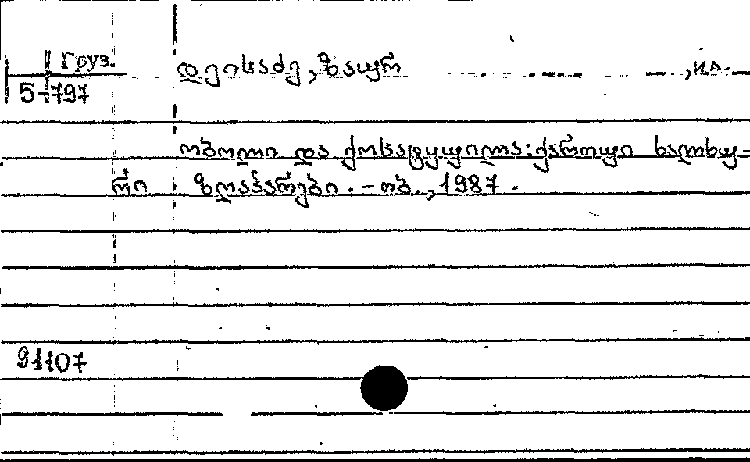 Груз.
5-797
დეისაძე, ზაურ , ил.
ობოლი და ქოსატყუილა: ქართული ხალხუ-
რი ზღაპრები. - თბ., 1987.
91107